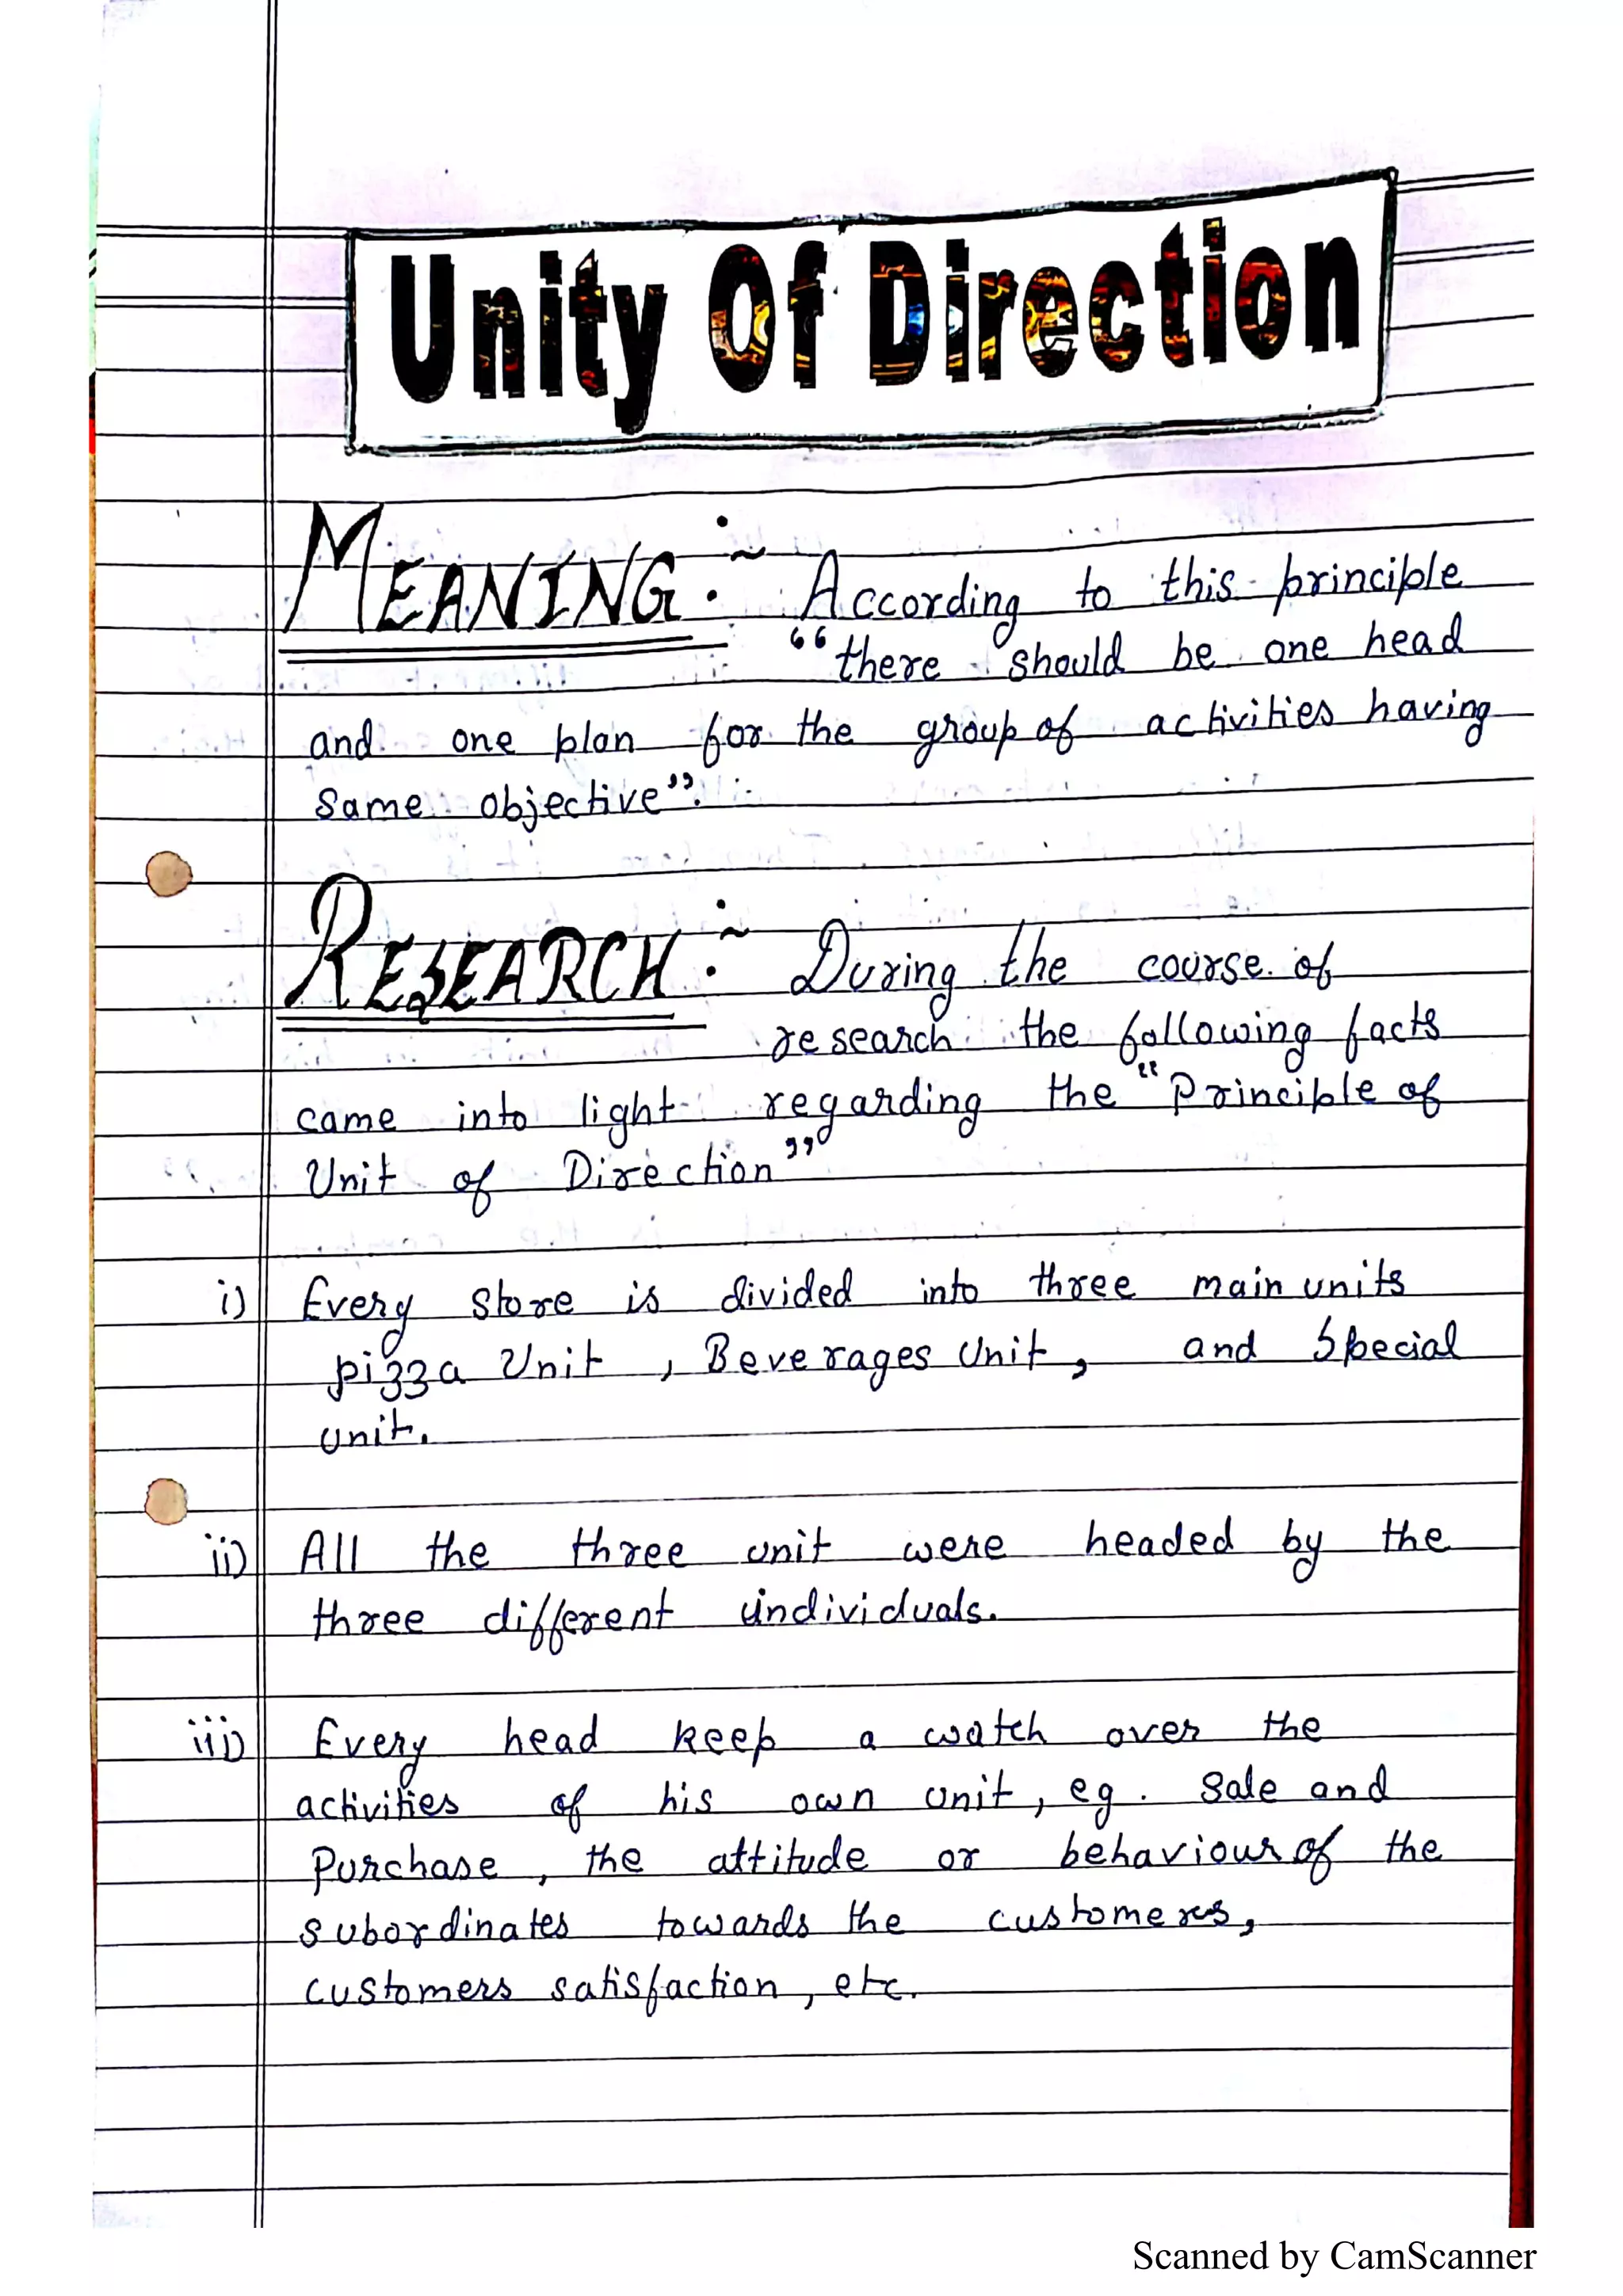 Unity Of Direction
MEANING :~ According to this principle
“there should be one head
and one plan for the group of activities having
same objective”.
RESEARCH :~ During the course of
research the following facts
came into light regarding the “Principle of
Unit of Direction”
i) Every store is divided into three main units
pizza Unit , Beverages Unit , and Special
unit.
ii) All the three unit were headed by the
three different individuals.
iii) Every head keep a watch over the
activities of his own unit , eg . Sale and
Purchase , the attitude or behaviour of the
subordinates towards the customers,
customers satisfaction , etc.
Scanned by CamScanner